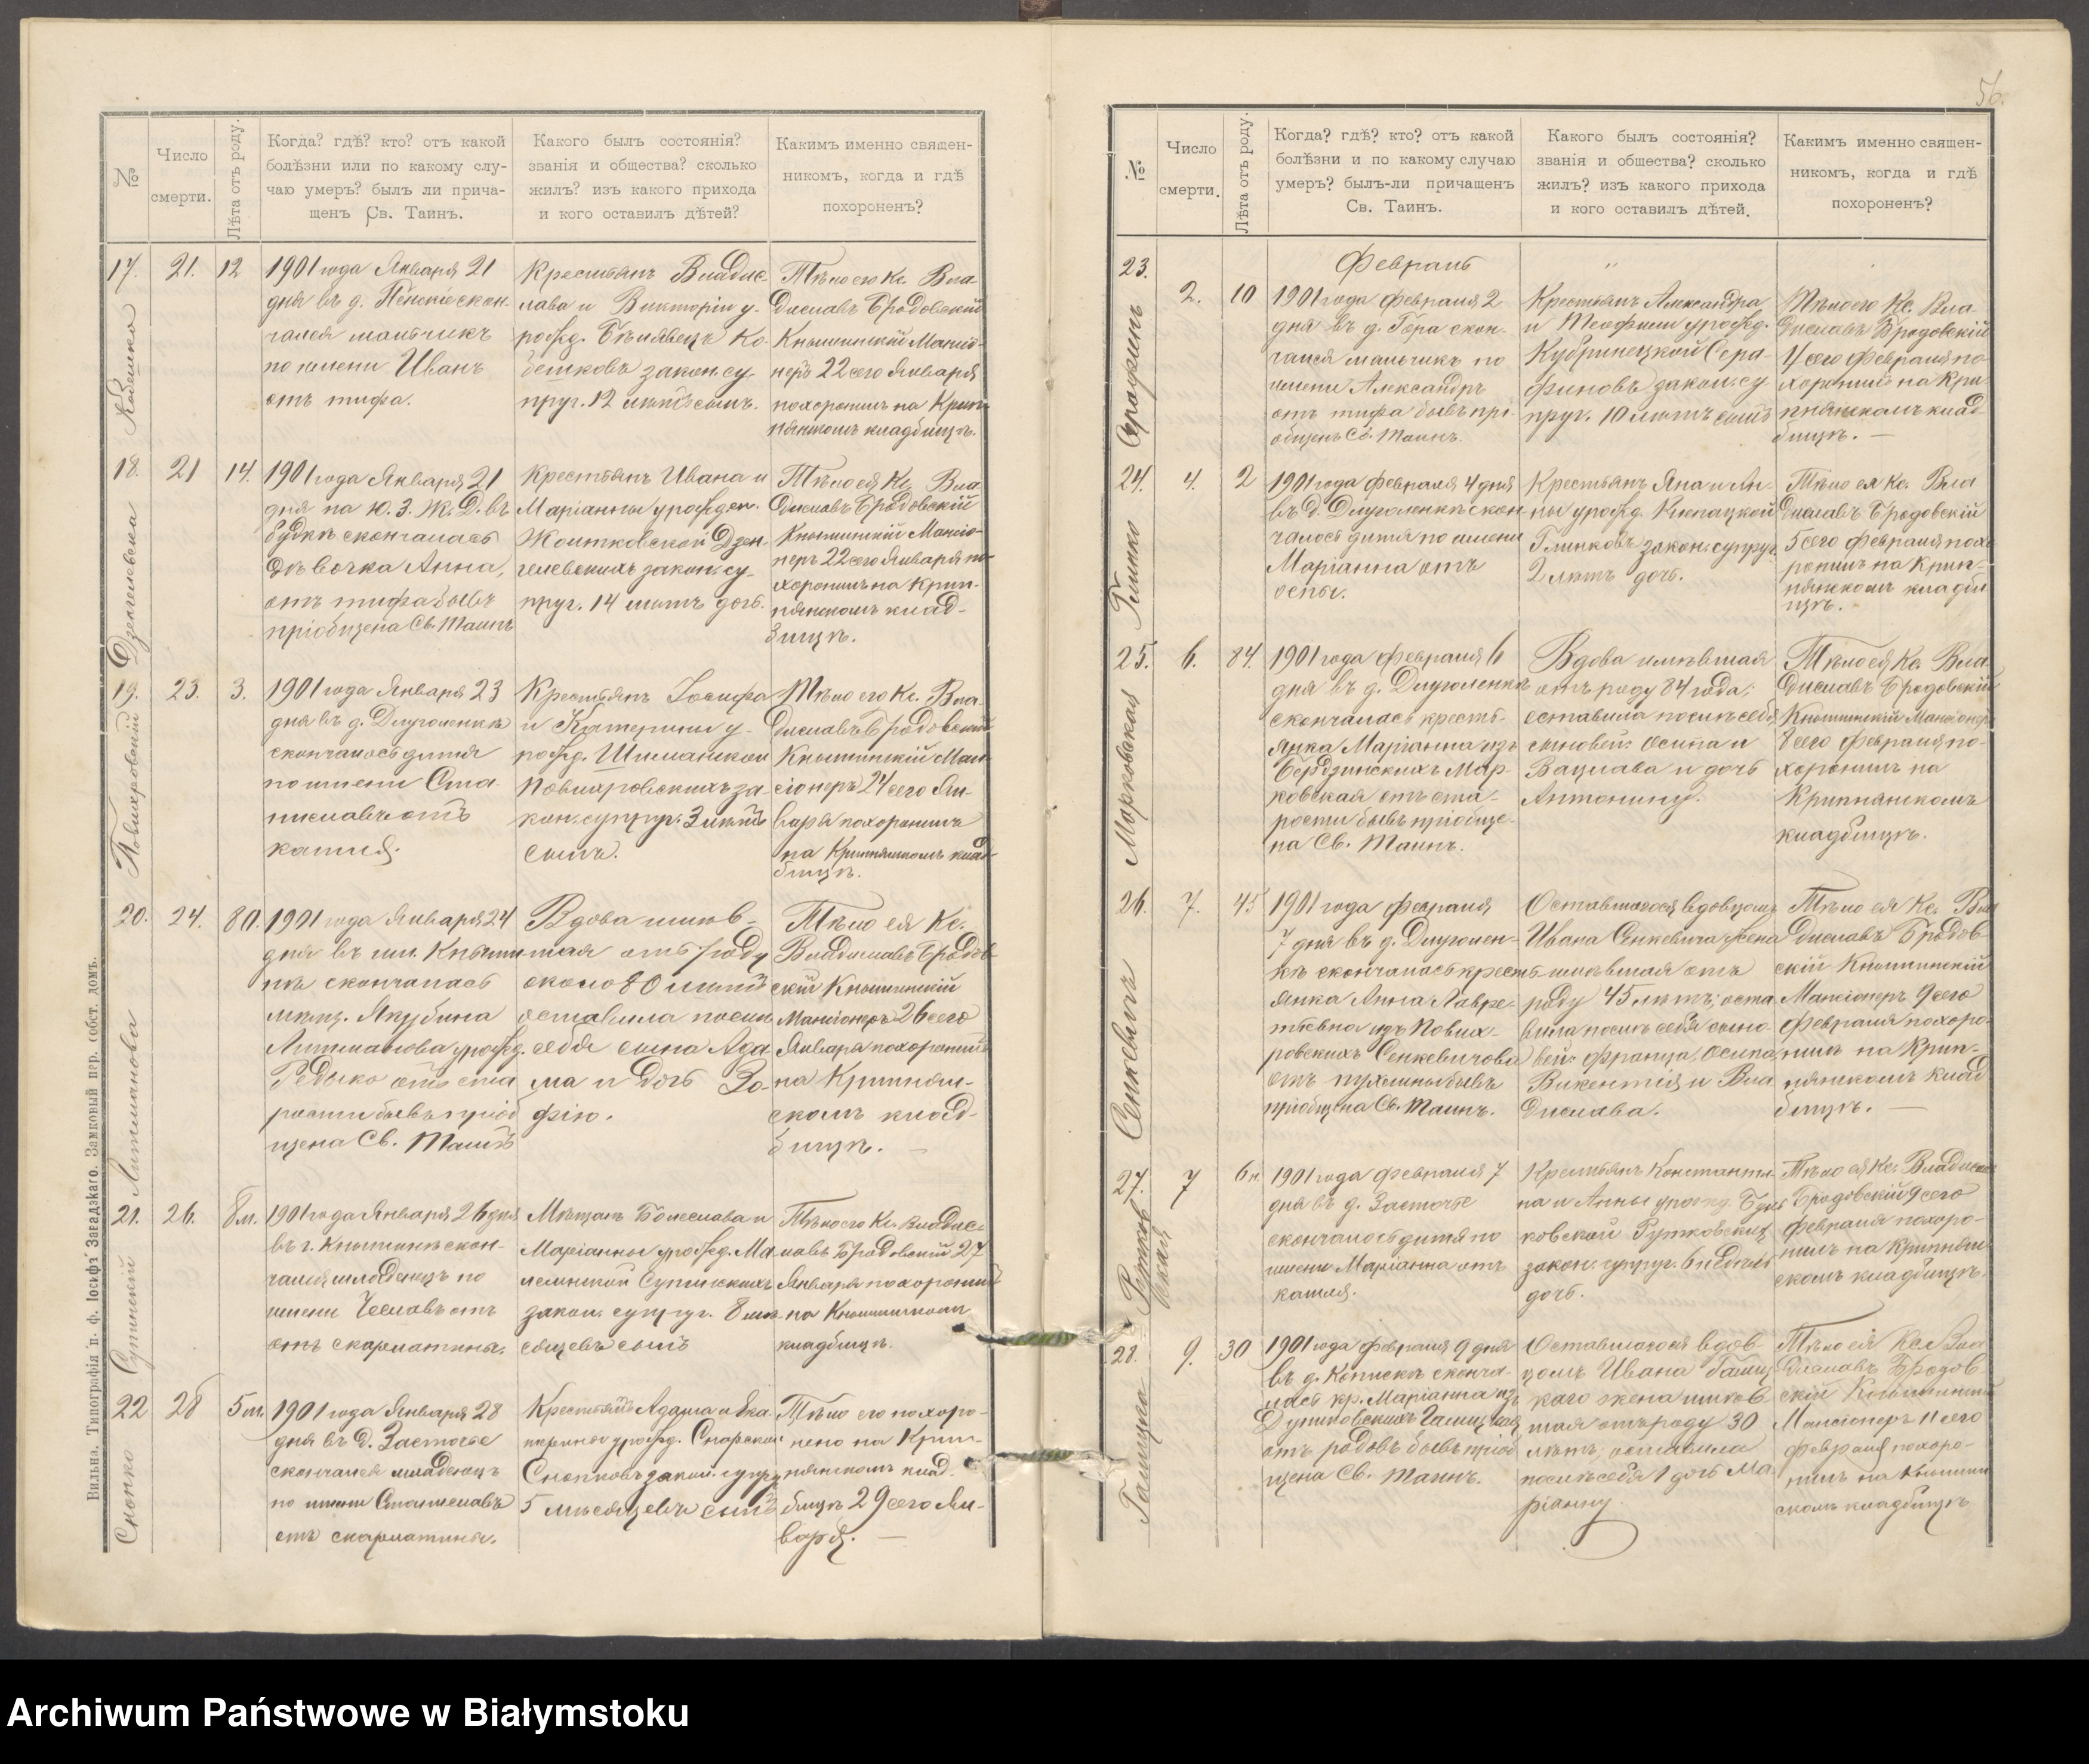 №
Число
смерти.
Лѣта отъ роду.
Когда? гдѣ? кто? отъ какой
болѣзни или по какому слу-
чаю умеръ? былъ ли прича-
щенъ Св. Таинъ.
Какого былъ состоянія?
званія и общества? сколько
жилъ? изъ какого прихода
и кого оставилъ дѣтей?
Какимъ именно священ-
никомъ, когда и гдѣ
похороненъ?
17.
21.
12
1901 года Января 21
дня въ д. Пенскіе скон-
чался мальчикъ
по имени Иванъ
отъ тифа.
Крестьянъ Владис-
лава и Викторіи у-
рожд. Бѣлявецъ Ко-
бешковъ закон. су-
пруг. 12 лѣтъ сынъ.
Тѣло его Кс. Вла
диславъ Бродовскій
Кнышинскій Мансіо-
неръ 22 сего Января
похоронилъ на Крип-
нянскомъ кладбищѣ.
Кобешко
18.
21
14.
1901 года Января 21
дня на Ю. З. Ж. Д. въ
будкѣ скончалась
дѣвочка Анна,
отъ тифа бывъ
пріобщена Св. Таинъ
Крестьянъ Ивана и
Маріанны урожден.
Жолтковской Дзен-
гелевскихъ закон. су-
пруг. 14 лѣтъ дочь.
Тѣло ея Кс. Вла
диславъ Бродовскій
Кнышинскій Мансіо-
неръ 22 сего Января по-
хоронилъ на Крип-
нянскомъ клад-
бищѣ.
Дзенгелевска
19.
23.
3.
1901 года Января 23
дня въ д. Длуголенкѣ
скончалось дитя
по имени Ста-
ниславъ отъ
кашля.
Крестьянъ Іосифа
и Катерины у-
рожд. Шиманской
Повихровскихъ за-
кон. супруг. 3 лѣтъ
сынъ.
Тѣло его Кс. Вла-
диславъ Бродовскій
Кнышинскій Ман-
сіонеръ 24 сего Ян-
варя похоронилъ
на Крипнянскомъ клад-
бищѣ.
Повихровскій
20.
24.
80.
1901 года Января 24
дня въ им. Кнышин
кѣ скончалась
мѣщ. Якубина
Липманова урожд.
Редько отъ ста
рости бывъ пріоб
щена Св. Таинъ
Вдова имѣв-
шая отъ роду
около 80 лѣтъ
оставила послѣ
себя сына Ада
ма и дочь Зо-
фію.
Тѣло ея Кс.
Владиславъ Бродов-
скій Кнышинскій
Мансіонеръ 26 сего
Января похоронилъ
на Крипнян-
скомъ клад-
бищѣ. —
Липманова
21.
26.
8 м.
1901 года Января 26 дня
въ г. Кнышинѣ скон-
чался младенецъ по
имени Чеславъ отъ
отъ скарлатины.
Мѣщанъ Болеслава и
Маріанны урожд. Ма
лешской Супинскихъ
закон. супруг. 8 мѣ-
сяцевъ сынъ
Тѣло его Кс. Владис-
лавъ Бродовскій 27
Января похоронилъ
на Кнышинскомъ
кладбищѣ.
Супинскій
22
28
5 м.
1901 года Января 28
дня въ д. Засточе
скончался младенецъ
по имени Станиславъ
отъ скарлатины.
Крестьянъ Адама и Ека
терины урожд. Снарской
Снопковъ закон. супру
5 мѣсяцевъ сынъ
Тѣло его похоро-
нено на Крип-
нянскомъ клад-
бищѣ 29 сего Ян-
варя. —
Снопко
Вильна. Типографія п. ф. Іосифъ Завадзкаго. Замковый пер. собст. домъ.
56.
№
Число
смерти.
Лѣта отъ роду.
Когда? гдѣ? кто? отъ какой
болѣзни и по какому случаю
умеръ? былъ-ли причащенъ
Св. Таинъ.
Какого былъ состоянія?
званія и общества? сколько
жилъ? изъ какого прихода
и кого оставилъ дѣтей.
Какимъ именно священ-
никомъ, когда и гдѣ
похороненъ?
Февраль
23.
2.
10
1901 года февраля 2
дня въ д. Гора скон-
чался мальчикъ по
имени Александръ
отъ тифа бывъ прі-
общенъ Св. Таинъ.
Крестьянъ Александра
и Теофили урожд.
Кубринецкой Сера-
финовъ закон. су
пруг. 10 лѣтъ сынъ
Тѣло его Кс. Вла
диславъ Бродовскій
4 сего февраля по-
хоронилъ на Кри
пнянскомъ клад-
бищѣ. —
Серафинъ
24.
4.
2
1901 года февраля 4 дня
въ д. Длуголенкѣ скон
чалось дитя по имени
Маріанна отъ
оспы.
Крестьянъ Яна и Ан-
ны урожд. Клепацкой
Глинковъ закон. супруг.
2 лѣтъ дочь.
Тѣло ея Кс. Вла
диславъ Бродовскій
5 сего февраля похо
ронилъ на Крип-
нянскомъ кладби
щѣ.
Глинко
25.
6.
84.
1901 года февраля 6
дня въ д. Длуголенкѣ
скончалась кресть-
янка Маріанна изъ
Бердзинскихъ Мар-
ковская отъ ста-
рости бывъ пріобще-
на Св. Таинъ.
Вдова имѣвшая
отъ роду 84 года;
оставила послѣ себя
сыновей: Осипа и
Вацлава и дочь
Антонину.
Тѣло ея Кс. Вла-
диславъ Бродовскій
Кнышинскій Мансіонеръ
8 сего февраля по-
хоронилъ на
Крипнянскомъ
кладбищѣ.
Марковская
26.
7.
45
1901 года февраля
7 дня въ д. Длуголен-
кѣ скончалась кресть-
янка Анна Лавре-
тьевна изъ Пових-
ровскихъ Сенкевичова
отъ пухлины бывъ
пріобщена Св. Таинъ.
Оставшагося вдовцомъ
Ивана Сенкевича жена
имѣвшая отъ
роду 45 лѣтъ; оста
вила послѣ себя сыно-
вей: Франца, Осипа,
Викентія и Вла
дислава.
Тѣло ея Кс. Вла
диславъ Бродов-
скій Кнышинскій
Мансіонеръ 9 сего
февраля похоро-
нилъ на Крип-
нянскомъ клад
бищѣ. —
Сенкевичъ
27.
7
6 н.
1901 года февраля 7
дня въ д. Засточе
скончалось дитя по
имени Маріанна отъ
кашля.
Крестьянъ Константи-
на и Анны урожд. Буль
ковской Рутковскихъ
закон. супруг. 6 недѣль
дочь.
Тѣло ея Кс. Владислав
Бродовскій 9 сего
февраля похоро-
нилъ на Крипнян-
скомъ кладбищѣ.
Рутков
ская
28.
9.
30
1901 года февраля 9 дня
въ д. Копискѣ сконча-
лась кр. Маріанна изъ
отъ родовъ бывъ пріоб
щена Св. Таинъ.
Оставшагося вдов-
цомъ Ивана Галиц
каго жена имѣв-
шая отъ роду 30
лѣтъ; оставила
послѣ себя 1 дочь Ма
ріанну.
Тѣло ея Кс. Вла
диславъ Бродов
скій Кнышинскій
Мансіонеръ 11 сего
февраля похоро-
нилъ на Кнышин
скомъ кладбищѣ
Галицка
Archiwum Państwowe w Białymstoku